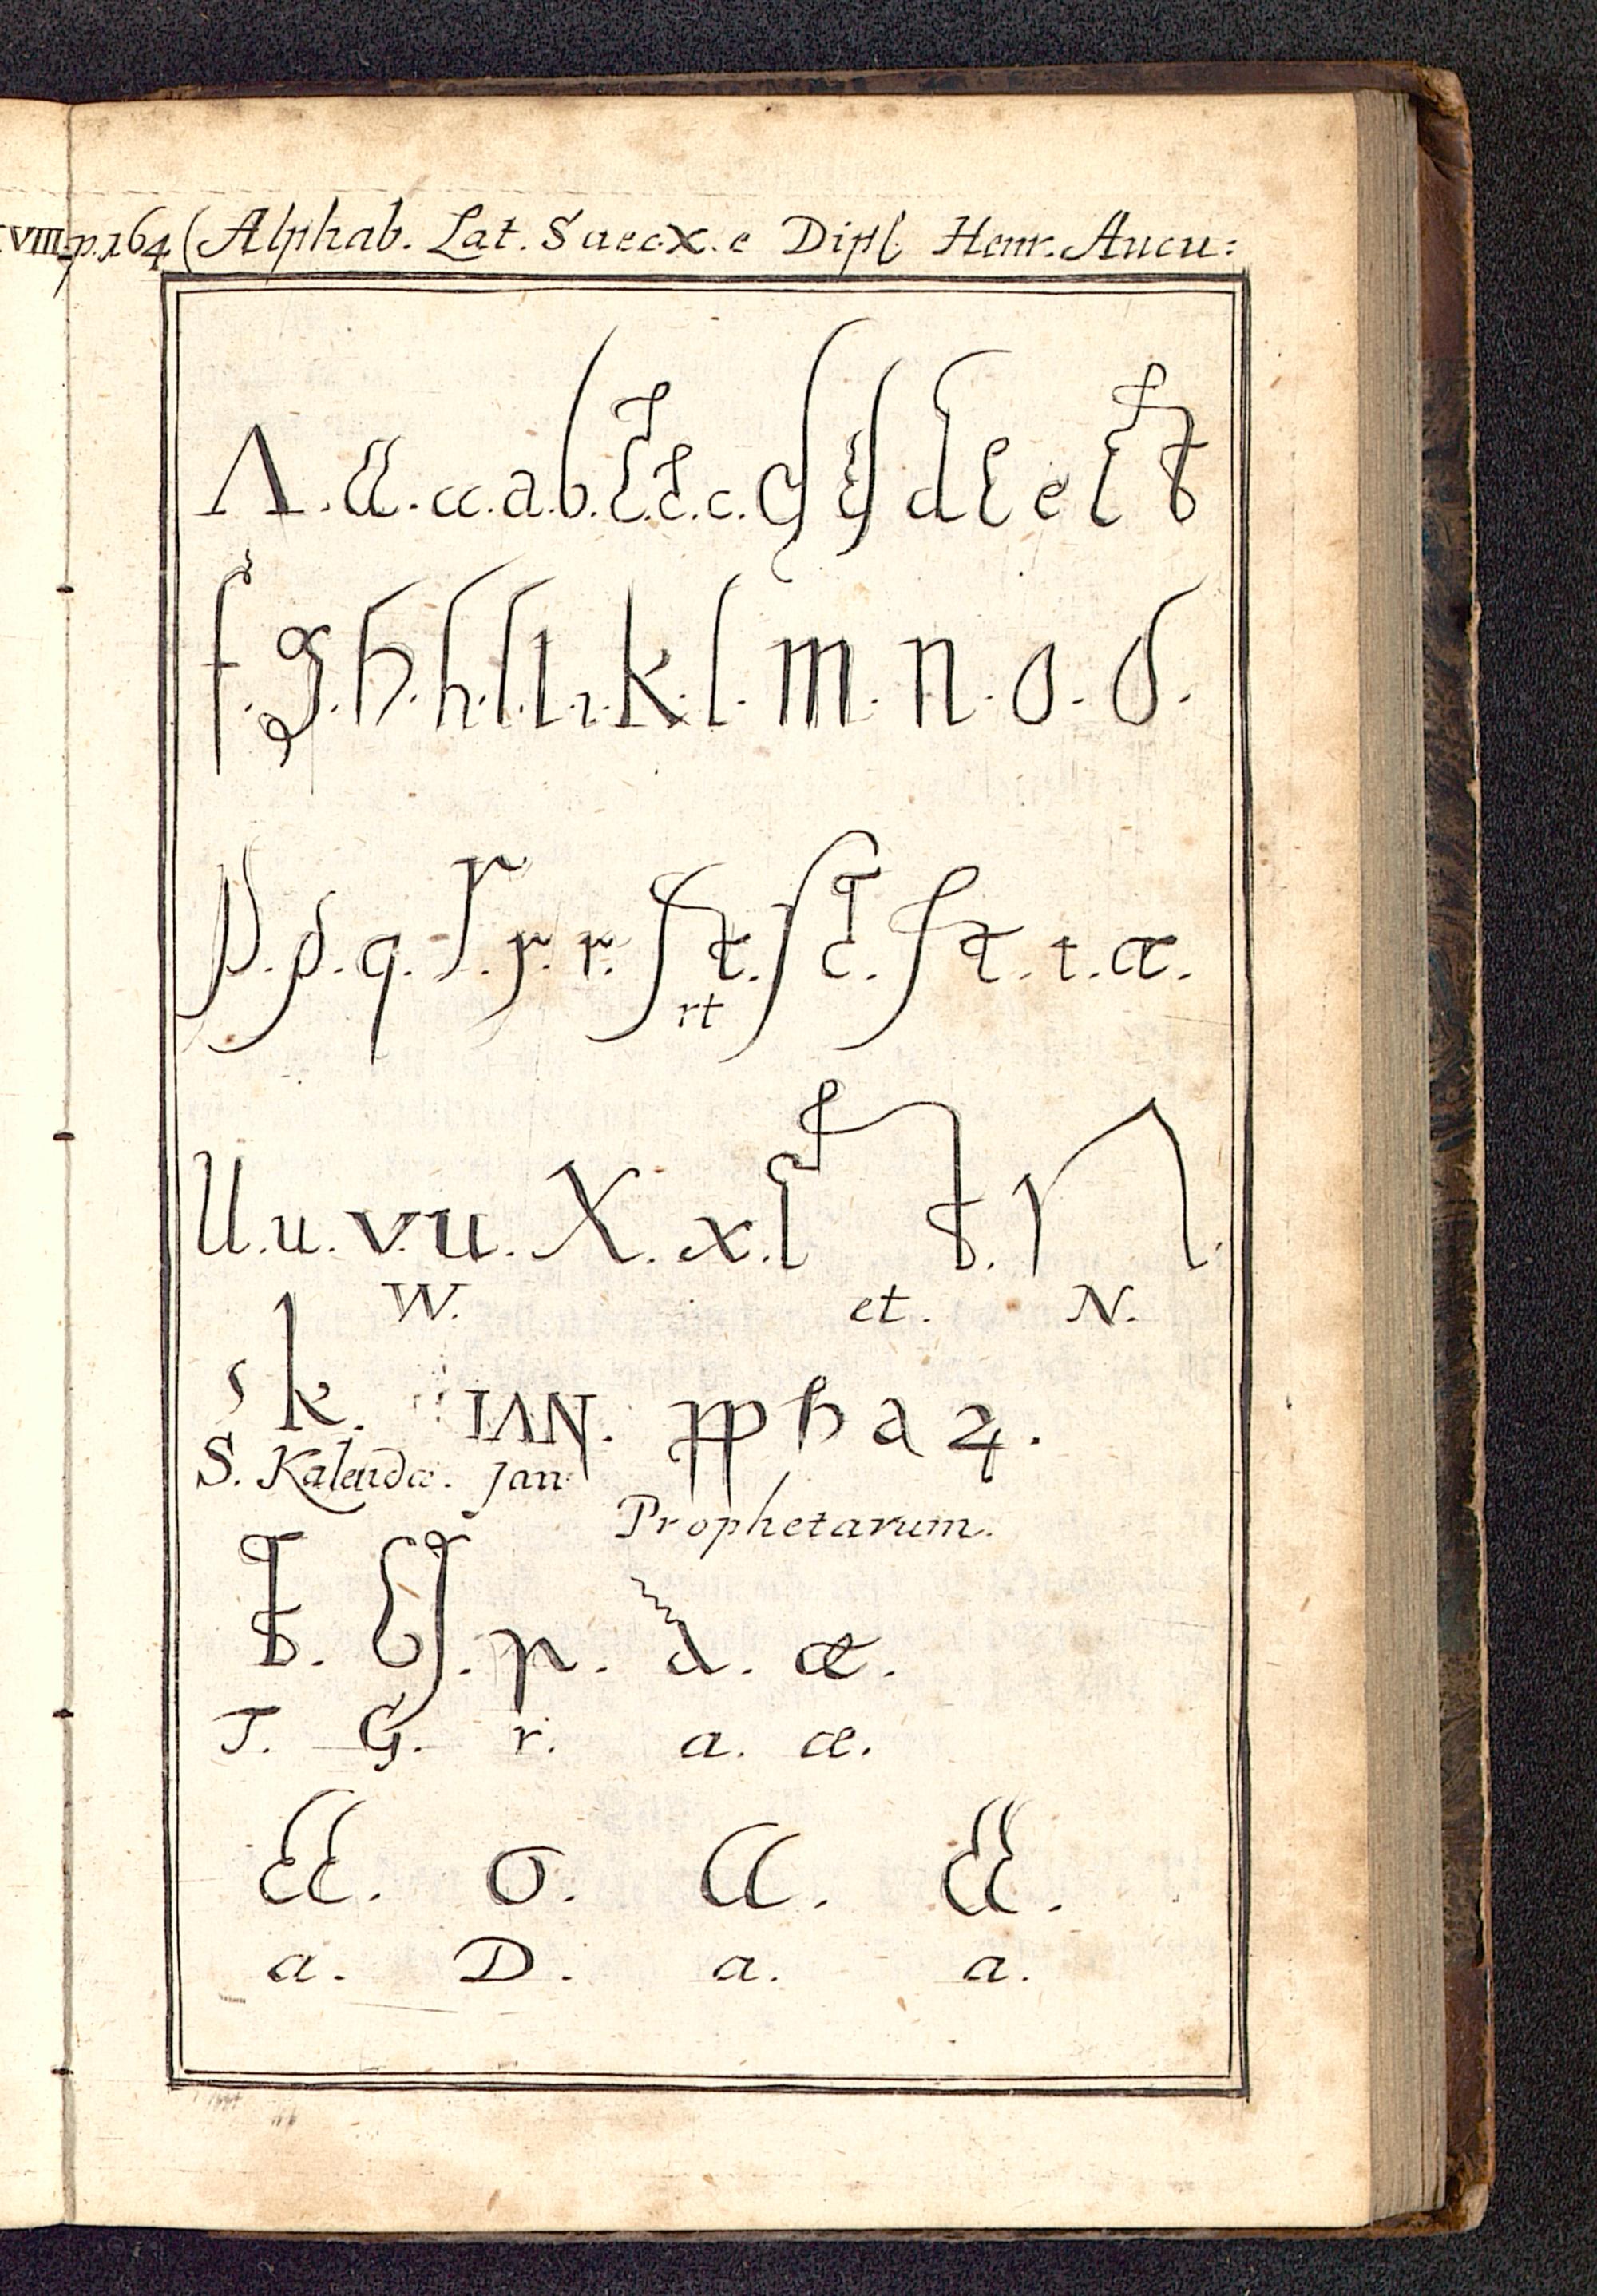 VIII p.164 (Alphab. Lat. Saec. X. e Dipl. Henr. Aucu:
A. a. a. a. b. c. c. c. d e e
f. g. h. h. l. l. i. k. l. m. n. o. o.
p. p. q. r. r. r. rt. ct. st. t. æ.
rt
U. u. vu. X. x. et. N.
W. et. N.
s k. IAN. pphaꝝ.
S. Kalendæ. Jan. Prophetarum.
T. G. r. a. æ.
T. G. r. a. æ.
a. o. a. a.
a. D. a. a.